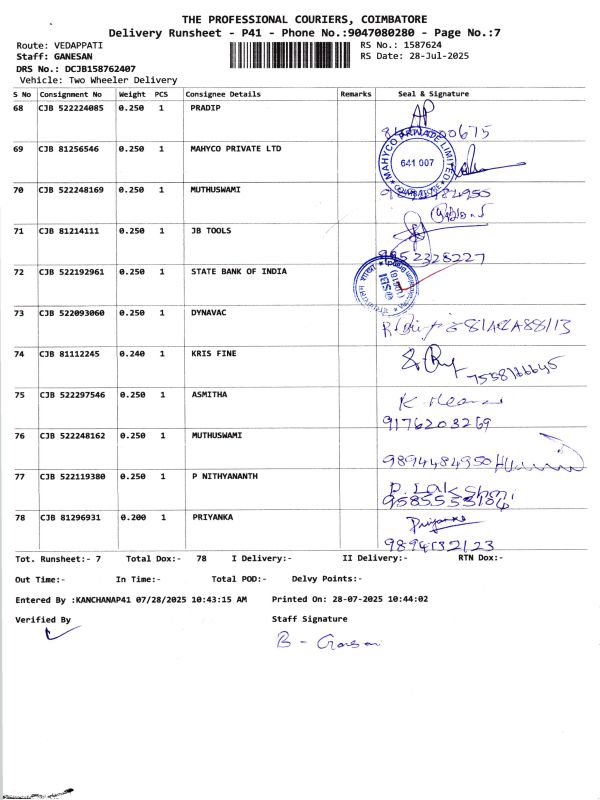 THE PROFESSIONAL COURIERS, COIMBATORE
Delivery Runsheet - P41 - Phone No.:9047080280 - Page No.:7
Route: VEDAPPATI RS No.: 1587624
Staff: GANESAN RS Date: 28-Jul-2025
DRS No.: DCJB158762407
Vehicle: Two Wheeler Delivery
S No Consignment No Weight PCS Consignee Details Remarks Seal & Signature
68 CJB 522224085 0.250 1 PRADIP AP
69 CJB 81256546 0.250 1 MAHYCO PRIVATE LTD 641 007
70 CJB 522248169 0.250 1 MUTHUSWAMI
71 CJB 81214111 0.250 1 JB TOOLS
9952328227
72 CJB 522192961 0.250 1 STATE BANK OF INDIA SBI
73 CJB 522093060 0.250 1 DYNAVAC
74 CJB 81112245 0.240 1 KRIS FINE
75 CJB 522297546 0.250 1 ASMITHA
9176203269
76 CJB 522248162 0.250 1 MUTHUSWAMI
9894484950
77 CJB 522119380 0.250 1 P NITHYANANTH
78 CJB 81296931 0.200 1 PRIYANKA Priyanka
Tot. Runsheet:- 7 Total Dox:- 78 I Delivery:- II Delivery:- RTN Dox:-
Out Time:- In Time:- Total POD:- Delvy Points:-
Entered By :KANCHANAP41 07/28/2025 10:43:15 AM Printed On: 28-07-2025 10:44:02
Verified By Staff Signature
B - Ganesan